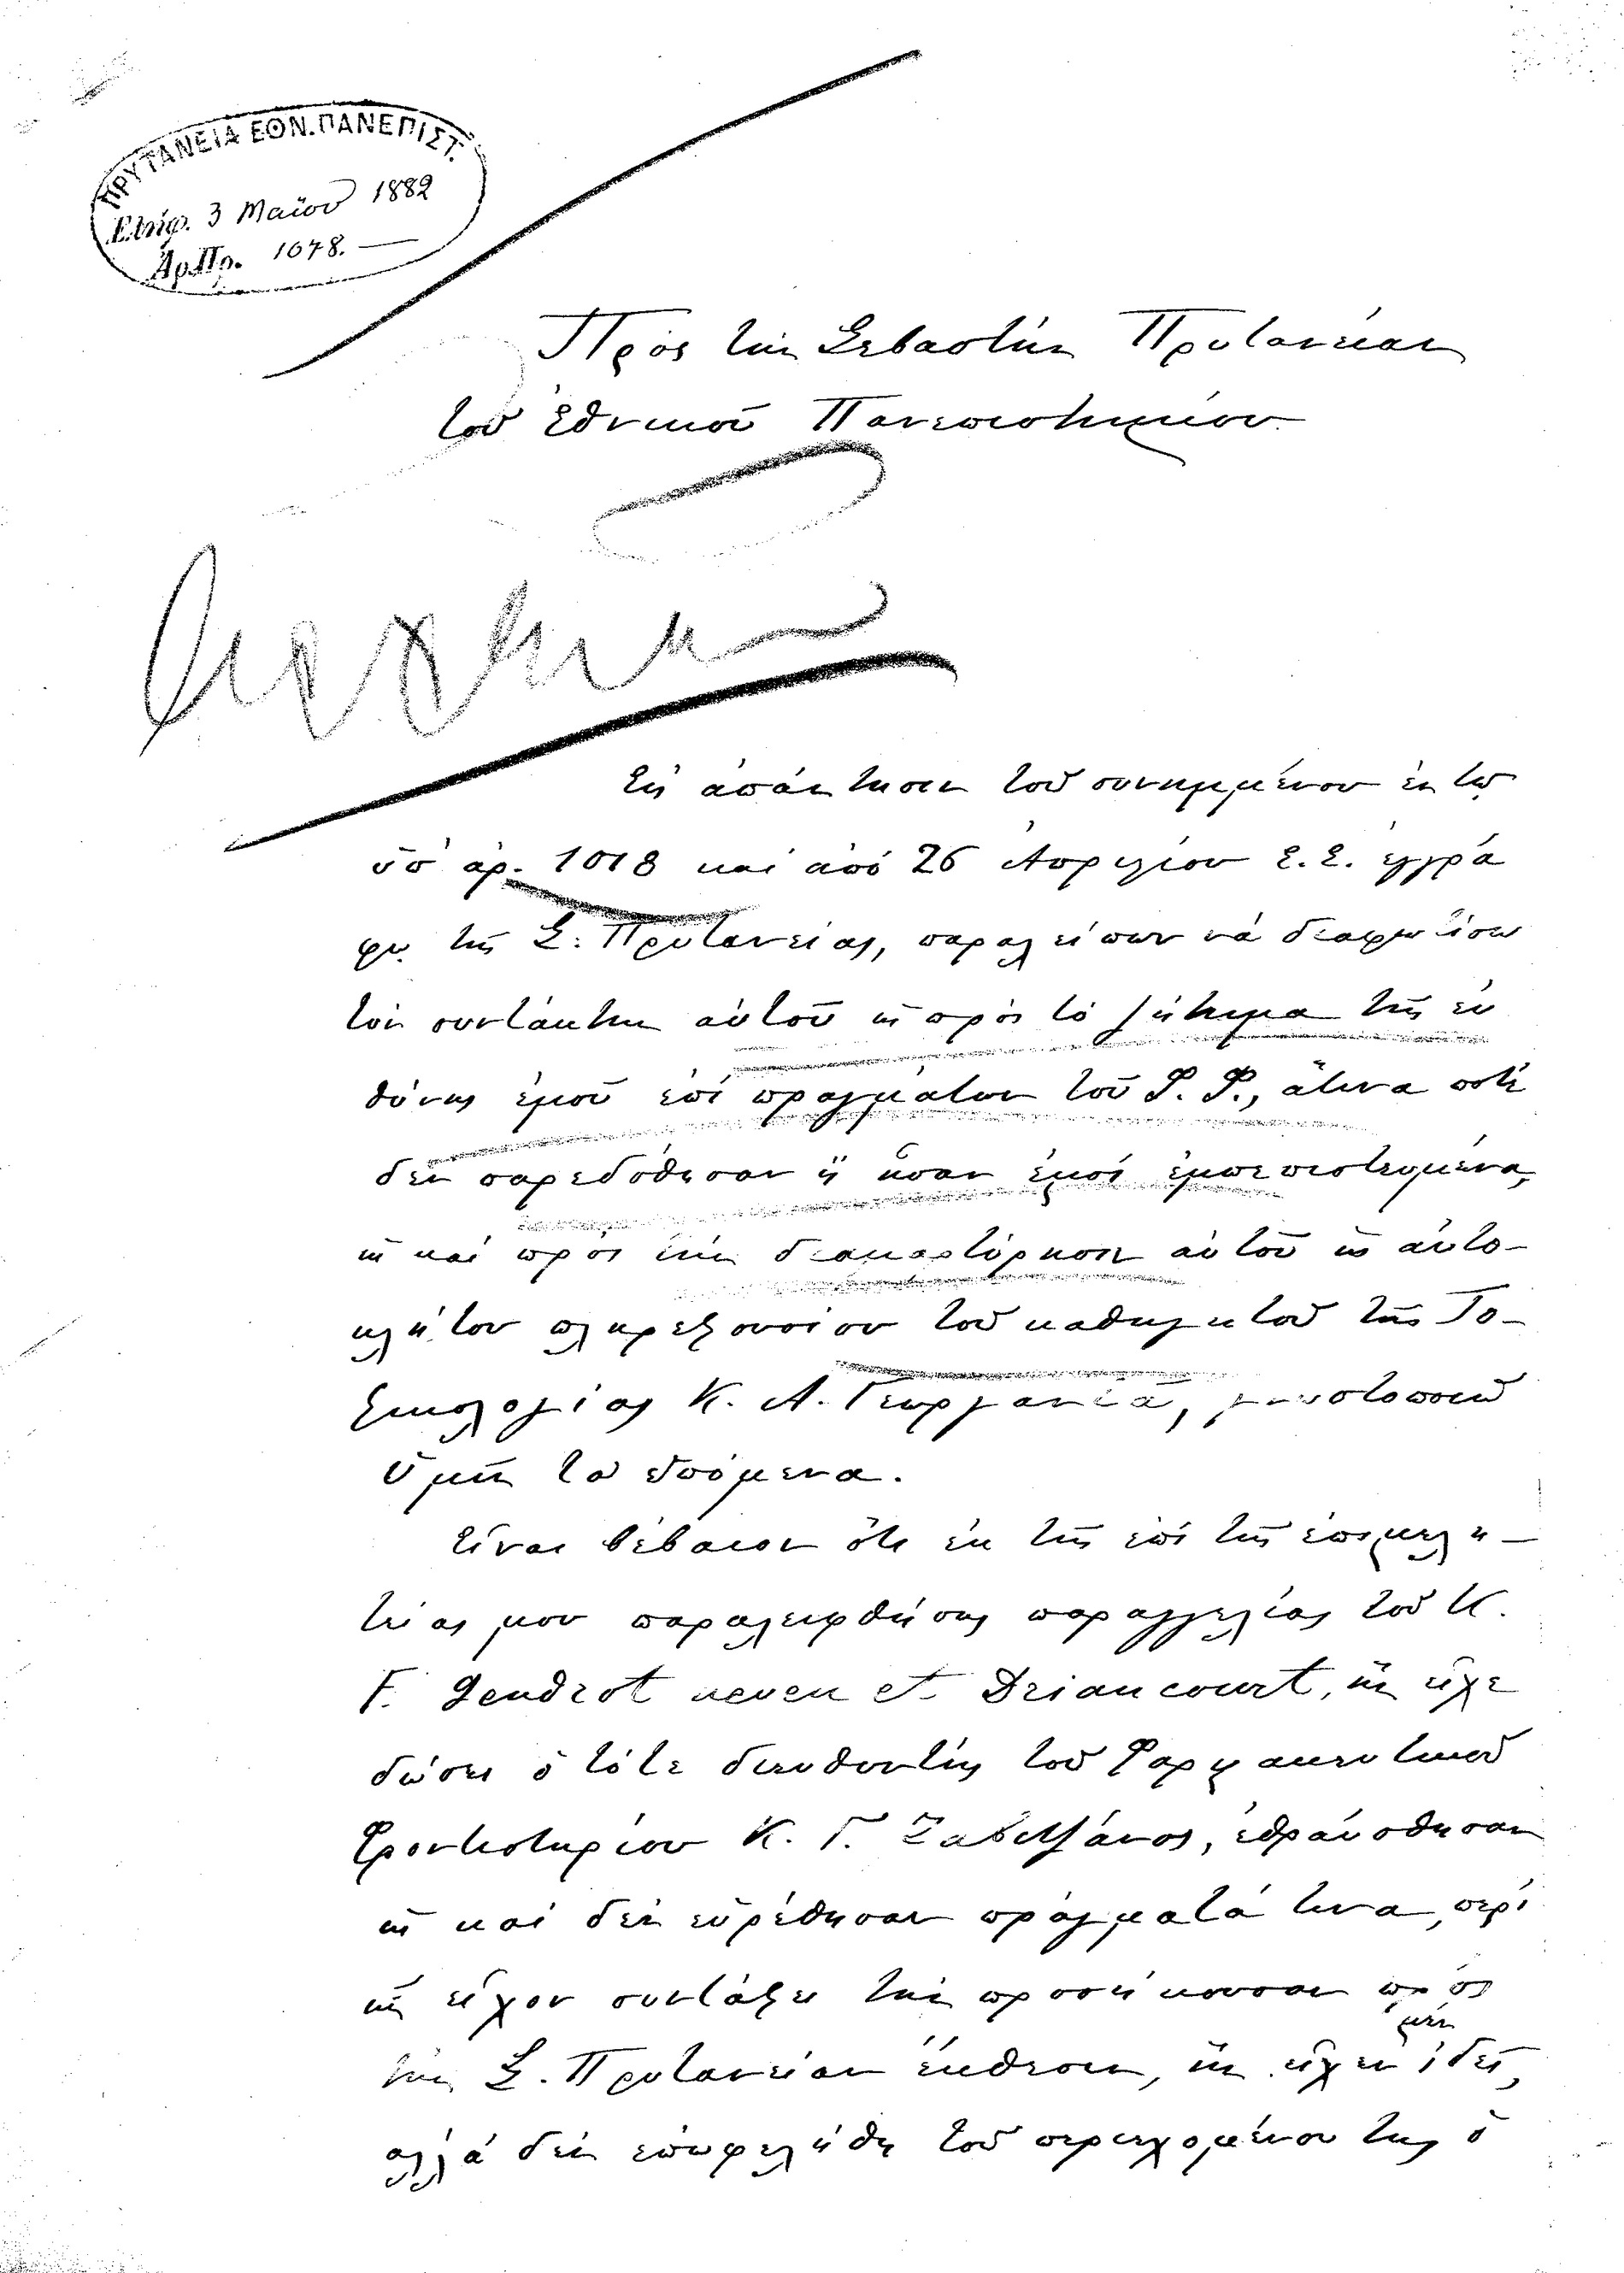 ΠΡΥΤΑΝΕΙΑ ΕΘΝ. ΠΑΝΕΠΙΣΤ.
Ἐλήφ. 3 Μαΐου 1882
Ἀρ.Πρ. 1678.
Πρὸς τὴν Σεβαστὴν Πρυτανείαν
τοῦ Ἐθνικοῦ Πανεπιστημίου
Εἰς ἀπάντησιν τοῦ συνημμένου ἐν τῷ
ὑπ' ἀρ. 1018 καὶ ἀπὸ 26 Ἀπριλίου ἐ.ἔ. ἐγγρά
φῳ τῆς Σ. Πρυτανείας, παραλείπων νὰ διαφωτίσω
τὸν συντάκτην αὐτοῦ ὡς πρὸς τὸ ζήτημα τῆς εὐ
θύνης ἐμοῦ ἐπὶ πραγμάτων τοῦ Φ. Φ., ἅτινα ποτὲ
δὲν παρεδόθησαν ἢ ἦσαν ἐμοὶ ἐμπεπιστευμένα,
ὡς καὶ πρὸς τὴν διαμαρτύρησιν αὐτοῦ ὡς αὐτο-
κλήτου πληρεξουσίου τοῦ καθηγητοῦ τῆς Το-
ξικολογίας Κ. Α. Γεωργαντᾶ, γνωστοποιῶ
ὑμῖν τὰ ἑπόμενα.
Εἶναι βέβαιον ὅτι ἐκ τῆς ἐπὶ τῆς ἐπιμελη-
τείας μου παραλειφθείσης παραγγελίας τοῦ Κ.
F. Gendrot neveu et Driancourt, ἣν εἶχε
δώσει ὁ τότε διευθυντὴς τοῦ Φαρμακευτικοῦ
Φροντιστηρίου Κ. Γ. Ζαβιτζάνος, ἐθραύσθησαν
ὡς καὶ δὲν εὑρέθησαν πράγματά τινα, περὶ
ὧν εἶχον συντάξει τὴν προσήκουσαν πρὸς
τὴν Σ. Πρυτανείαν ἔκθεσιν, ἣν εἶχεν μὲν ἰδεῖ,
ἀλλὰ δὲν ἐπωφελήθη τοῦ περιεχομένου της ὁ